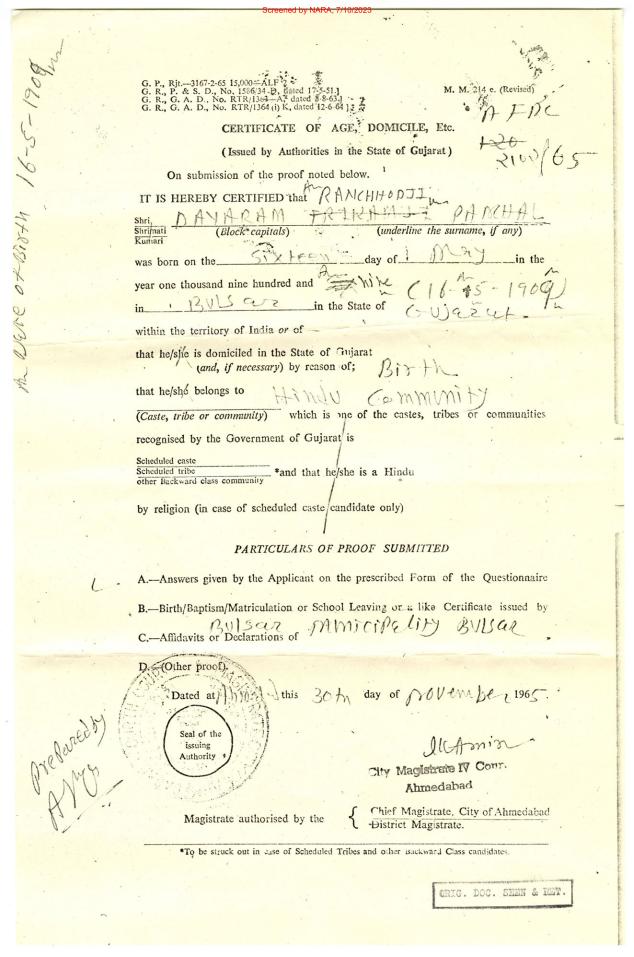 Screened by NARA, 7/10/2023
G. P., Rjt.—3167-2-65 15,000—ALF
G. R., P. & S. D., No. 1586/34-D, dated 17-5-51.]
G. R., G. A. D., No. RTR/1364-A, dated 8-8-63.]
G. R., G. A. D., No. RTR/1364 (i) K, dated 12-6-64]
M. M. 214 e. (Revised)
CERTIFICATE OF AGE, DOMICILE, Etc.
(Issued by Authorities in the State of Gujarat)
2100/65
On submission of the proof noted below.
IT IS HEREBY CERTIFIED that RANCHHODJI
Shri, DAYARAM TRIKAMJI PANCHAL
Shrimati (Block capitals) (underline the surname, if any)
Kumari
was born on the Sixteen day of May in the
year one thousand nine hundred and Nine (16-5-1909)
in BULSAR in the State of Gujarat.
within the territory of India or of
that he/she is domiciled in the State of Gujarat
(and, if necessary) by reason of; Birth
that he/she belongs to Hindu Community
(Caste, tribe or community) which is one of the castes, tribes or communities
recognised by the Government of Gujarat is
Scheduled caste
Scheduled tribe *and that he/she is a Hindu
other Backward class community
by religion (in case of scheduled caste candidate only)
PARTICULARS OF PROOF SUBMITTED
A.—Answers given by the Applicant on the prescribed Form of the Questionnaire
B.—Birth/Baptism/Matriculation or School Leaving or a like Certificate issued by
Bulsar Municipality Bulsar
C.—Affidavits or Declarations of
D.—(Other proof).
Dated at this 30th day of November 1965.
Seal of the
issuing
Authority
City Magistrate IV Court.
Ahmedabad
Magistrate authorised by the { Chief Magistrate, City of Ahmedabad
District Magistrate.
*To be struck out in case of Scheduled Tribes and other Backward Class candidates.
ORIG. DOC. SEEN & RET.
Date of Birth 16-5-1909
Prepared by